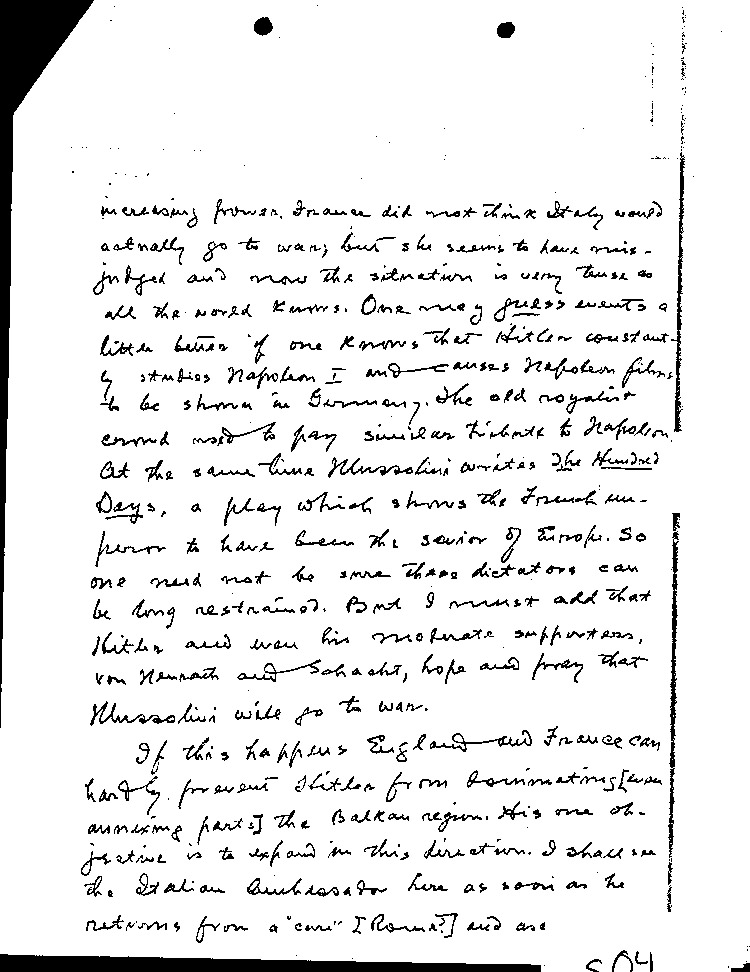 increasing power. France did not think Italy would
actually go to war; but she seems to have mis-
judged and now the situation is very tense as
all the world knows. One may guess events a
little better if one knows that Hitler constant-
ly studies Napoleon I and causes Napoleon films
to be shown in Germany. The old royalist
crowd used to pay similar tribute to Napoleon.
At the same time Mussolini writes The Hundred
Days, a play which shows the French em-
peror to have been the savior of Europe. So
one need not be sure these dictators can
be long restrained. But I must add that
Hitler and even his moderate supporters,
von Neurath and Schacht, hope and pray that
Mussolini will go to war.
If this happens England and France can
hardly prevent Hitler from dominating [even
annexing parts] the Balkan region. His one ob-
jective is to expand in this direction. I shall see
the Italian Ambassador here as soon as he
returns from a "cure" [Rome?] and
504